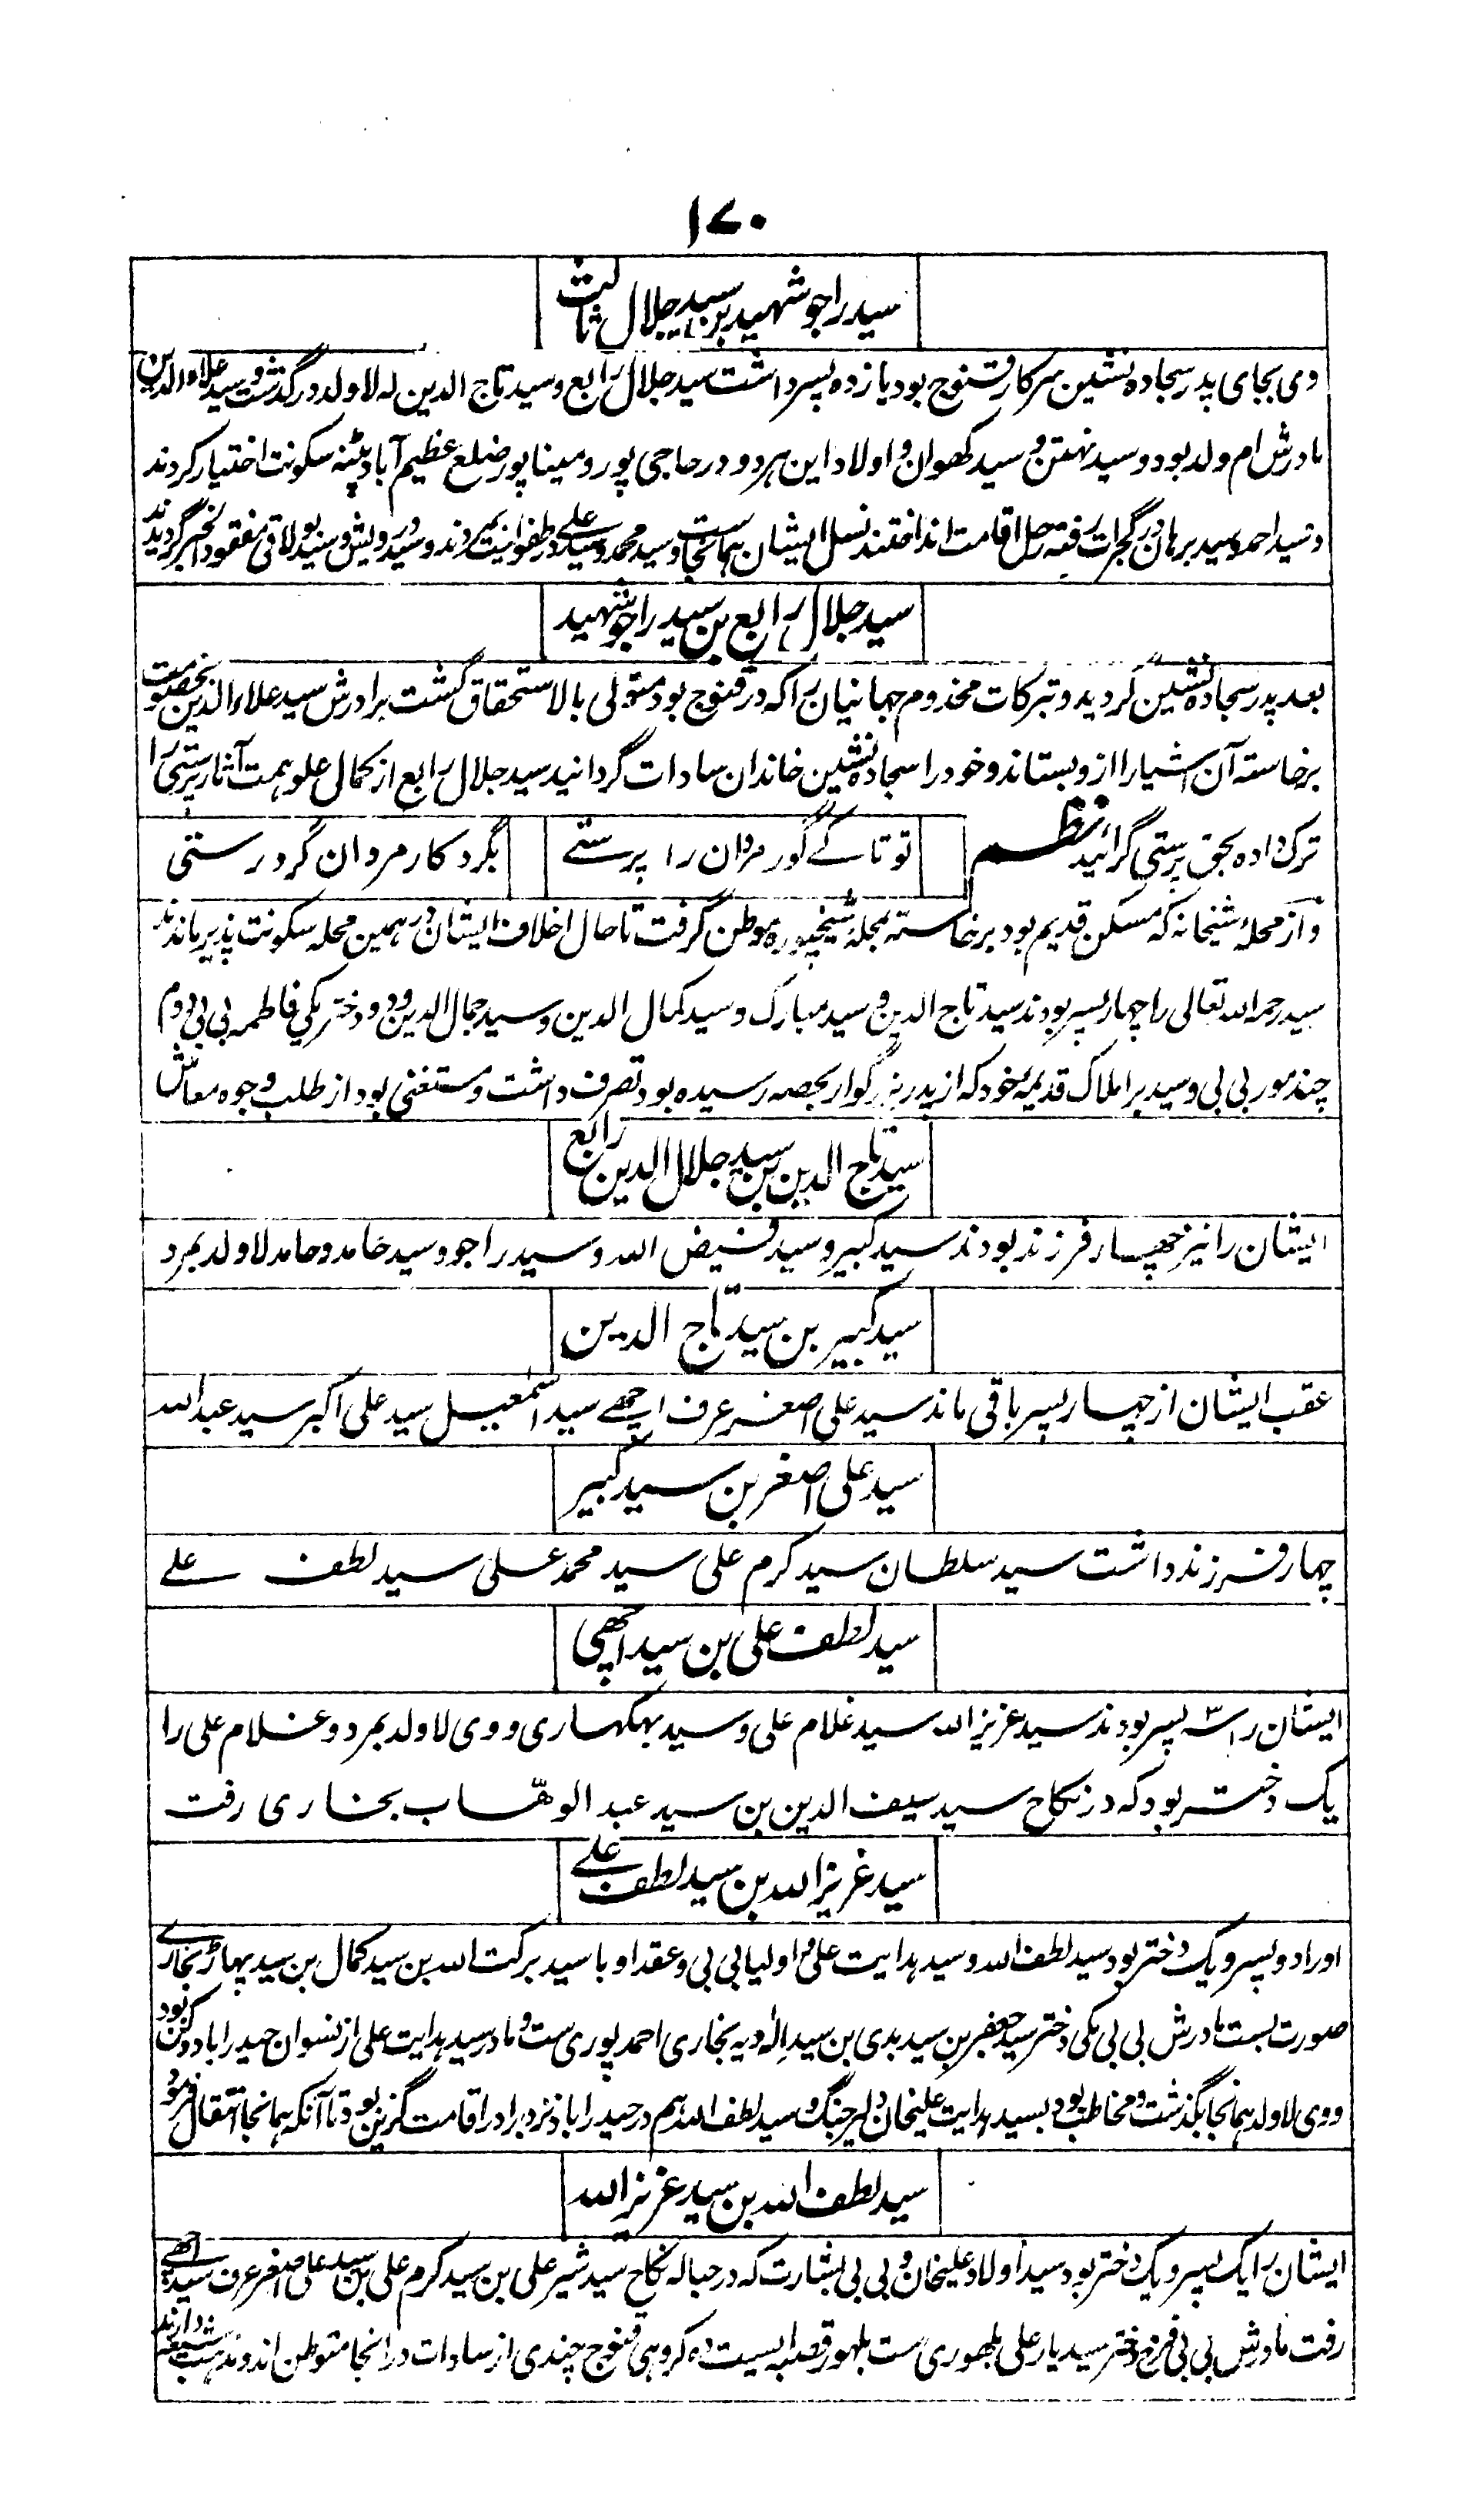 ۱۷۰
سید راجو شهید بن سید جلال ثالث
وی بجای پدر سجاده نشین سرکار قنوج بود یازده پسر داشت سید جلال رابع و سید تاج الدین که لاولد درگذشت و سید علاء الدین
مادرش ام ولد بود و سید نهتن و سید کهوان و اولاد این هر دو در حاجی پور و مینا پور ضلع عظیم آباد پٹنه سکونت اختیار کردند
و سید احمد و سید برهان در گجرات رفته رحل اقامت انداختند نسل ایشان همانجاست و سید محمد و سید علی در طفولیت بمردند و سید درویش و سید بولاقی مفقود الخبر گردیدند
سید جلال رابع بن سید راجو شهید
بعد پدر سجاده نشین گردید و تبرکات مخدوم جهانیان را که در قنوج بود متولی بالاستحقاق گشت برادرش سید علاء الدین بخصومت
برخاسته آن اشیا را از و بستاند و خود را سجاده نشین خاندان سادات گردانید سید جلال رابع از کمال علو همت آثار پرستی را
ترک داده بحق پرستی گرائید نظم
تو تا کے گور مردان را پرستے
بگرد کار مردان گرد رستی
و از محله شیخانه که مسکن قدیم بود برخاسته بمحله شیخپوره موطن گرفت تا حال اخلاف ایشان در همین محله سکونت پذیر ماندند
سید رحمه الله تعالی را چهار پسر بودند سید تاج الدین و سید مبارک و سید کمال الدین و سید جمال الدین و دو دختر یکی فاطمه بی بی دوم
چند مور بی بی و سید بر املاک قدیمه خود که از پدر بزرگوار بحصه رسیده بود تصرف داشت و مستغنی بود از طلب وجوه معاش
سید تاج الدین بن سید جلال الدین رابع
ایشان را نیز چهار فرزند بودند سید کبیر و سید فیض الله و سید راجو و سید حامد و حامد لاولد بمرد
سید کبیر بن سید تاج الدین
عقب ایشان از چهار پسر باقی ماند سید علی اصغر عرف اچھے سید اسمعیل سید علی اکبر سید عبدالله
سید علی اصغر بن سید کبیر
چهار فرزند داشت سید سلطان سید کرم علی سید محمد علی سید لطف علے
سید لطف علی بن سید اچھی
ایشان را سه پسر بودند سید عزیز الله سید غلام علی و سید بهکهاری و وی لاولد بمرد و غلام علی را
یک دختر بود که در نکاح سید سیف الدین بن سید عبد الوهّاب بخاری رفت
سید عزیز الله بن سید لطف علے
او را دو پسر و یک دختر بود سید لطف الله و سید هدایت علی و اولیا بی بی و عقد او با سید برکت الله بن سید کمال بن سید پہاڑ بخارے
صورت بست مادرش بی بی مکی دختر سید جعفر بن سید بدی بن سید اله دیه بخاری احمد پوری ست و مادر سید هدایت علی از نسوان حیدرآباد دکن بود
و وی لاولد همانجا بگذشت و مخاطب بود بسید هدایت علیخان دلیر جنگ و سید لطف الله هم در حیدرآباد نزد برادر اقامت گزین بود تا آنکه همانجا انتقال فرمود
سید لطف الله بن سید عزیز الله
ایشان را یک پسر و یک دختر بود سید اولاد علیخان و بی بی بشارت که در حباله نکاح سید شیر علی بن سید کرم علی بن سید علی اصغر عرف سید اچھے
رفت مادرش بی بی فرخ دختر سید یار علی بلهوری ست بلهور قصبه ایست ده کروهی قنوج چندی از سادات در انجا متوطن اند و مذهب شیعه دارند